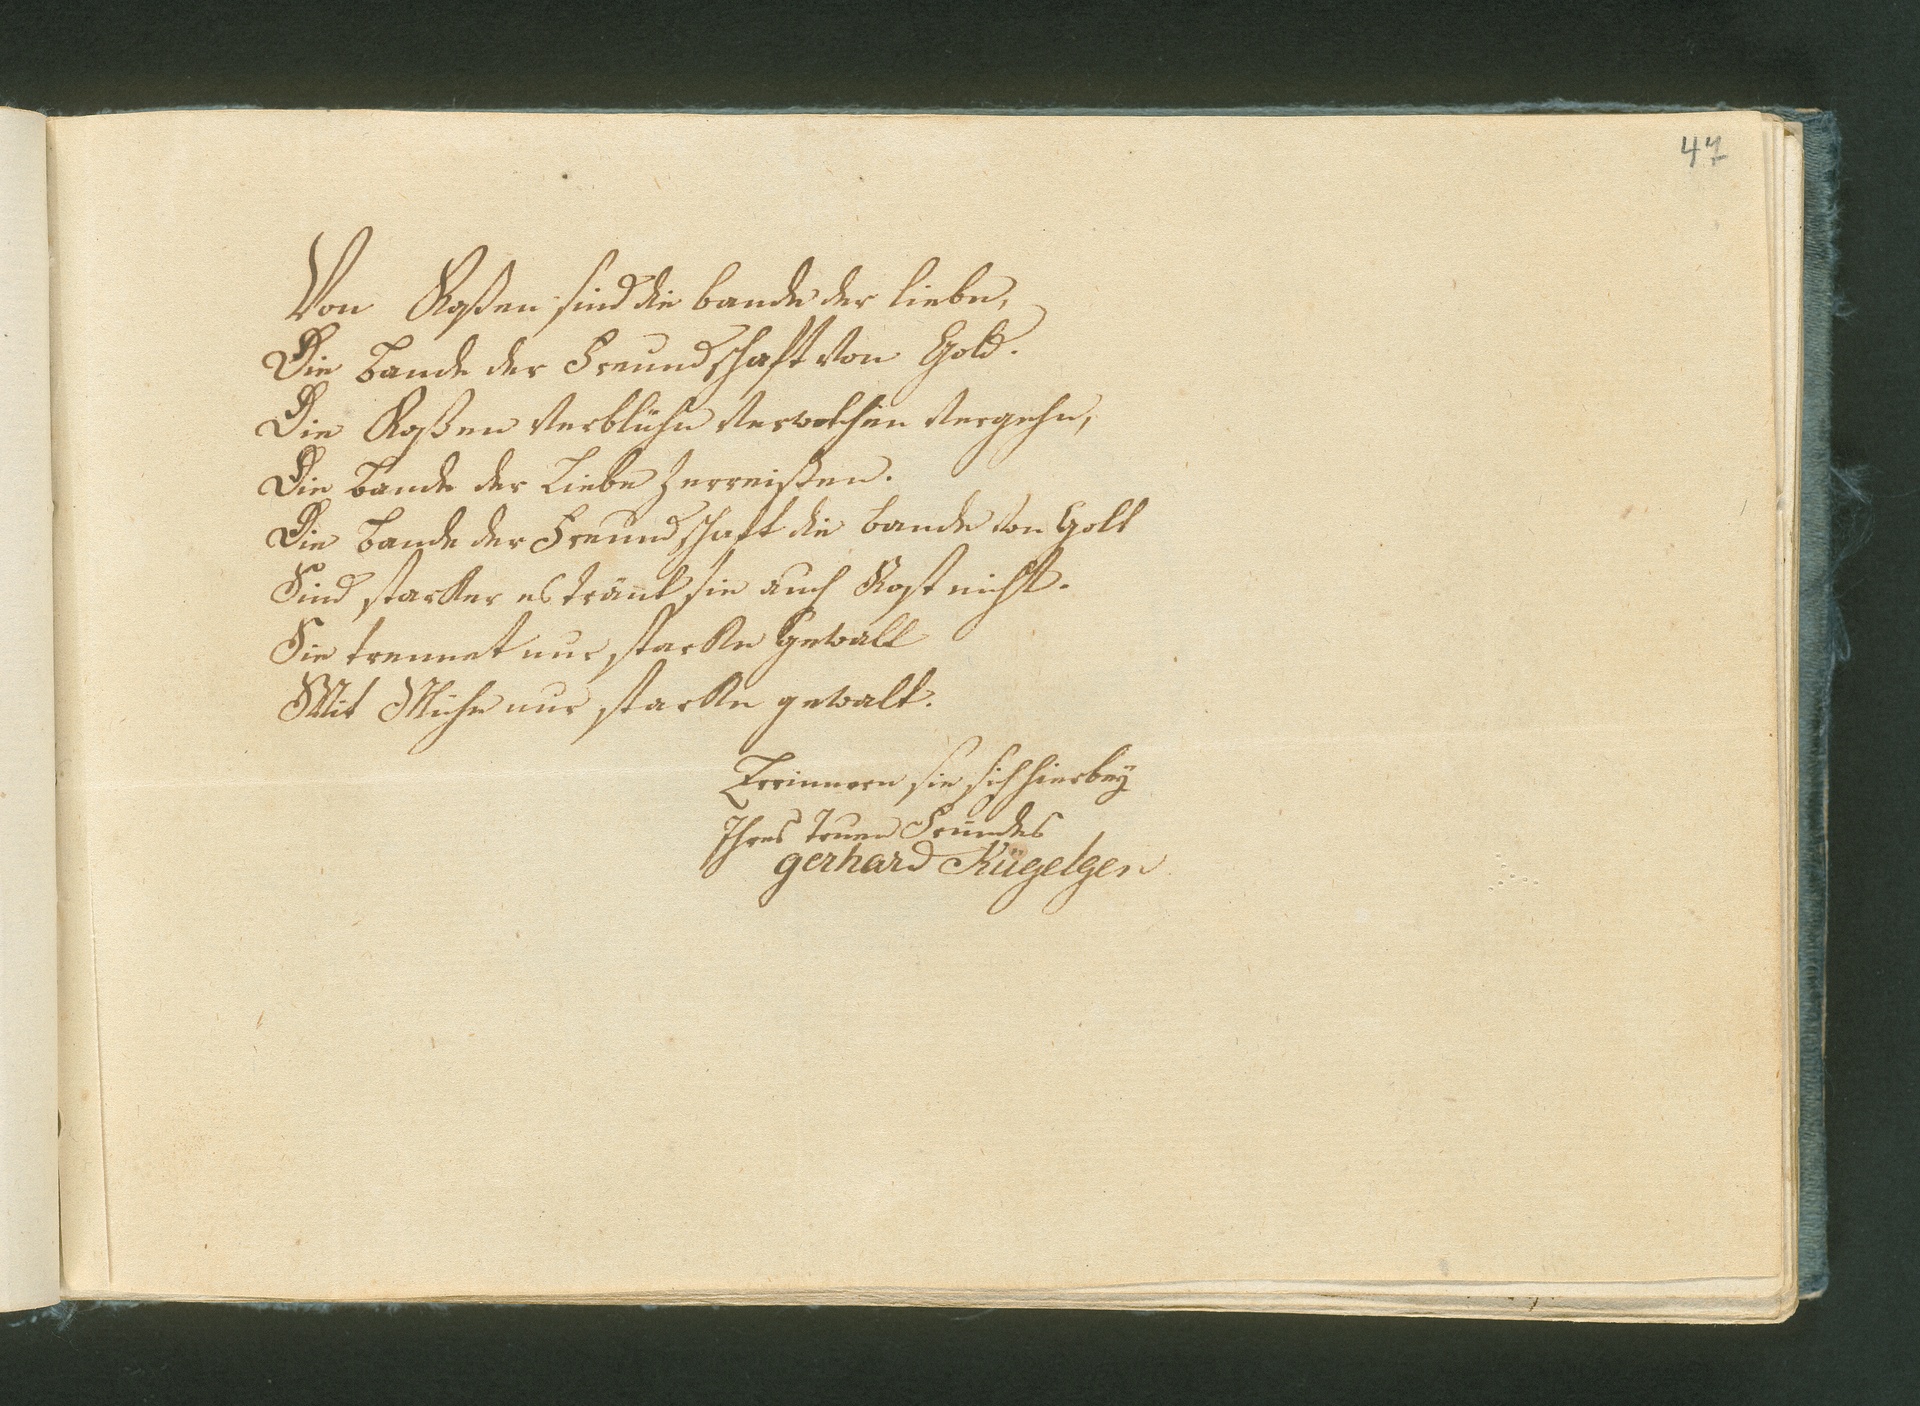 47
Von Roßen sind die bande der liebe,
Die bande der Freundschaft von Gold.
Die Roßen verblühn verwelken vergehn,
Die bande der Liebe zerreißen.
Die bande der Freundschaft die bande von Golt
Sind starker es trännt sie auch Rost nicht.
Sie trennet nur starke Gewalt
Mit Mühe nur starke gewalt.
Errinnern sie sich hierbeÿ
Ihres treuen Freundes
gerhard Kügelgen